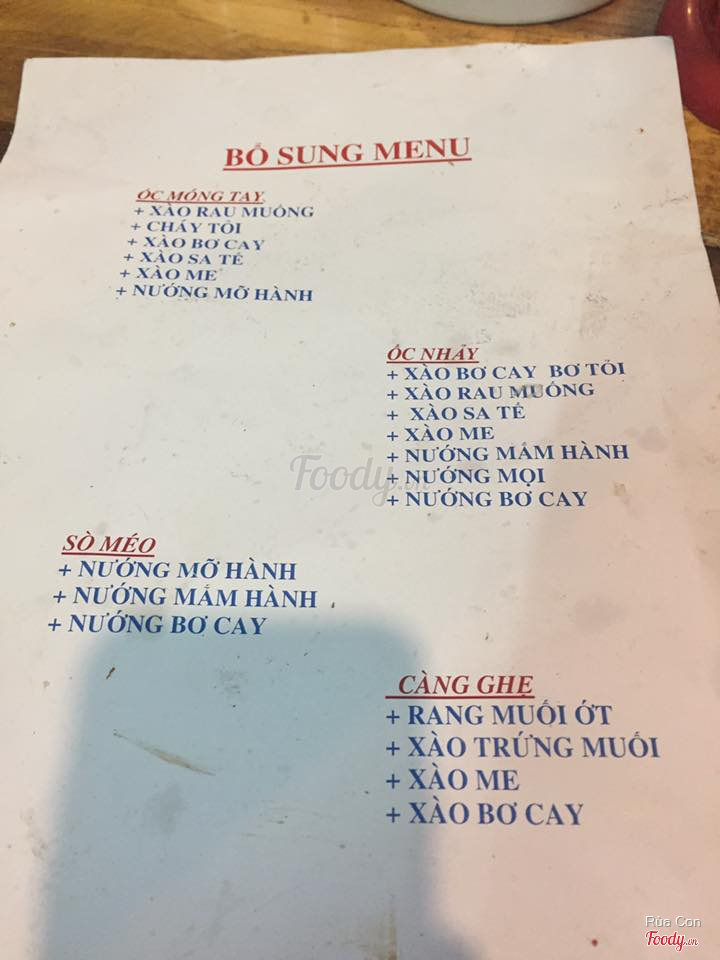 BỔ SUNG MENU
ỐC MÓNG TAY
+ XÀO RAU MUỐNG
+ CHÁY TỎI
+ XÀO BƠ CAY
+ XÀO SA TẾ
+ XÀO ME
+ NƯỚNG MỠ HÀNH
ỐC NHẢY
+ XÀO BƠ CAY BƠ TỎI
+ XÀO RAU MUỐNG
+ XÀO SA TẾ
+ XÀO ME
+ NƯỚNG MẮM HÀNH
+ NƯỚNG MỌI
+ NƯỚNG BƠ CAY
Foody.vn
SÒ MÉO
+ NƯỚNG MỠ HÀNH
+ NƯỚNG MẮM HÀNH
+ NƯỚNG BƠ CAY
CÀNG GHẸ
+ RANG MUỐI ỚT
+ XÀO TRỨNG MUỐI
+ XÀO ME
+ XÀO BƠ CAY
Rùa Con
Foody.vn